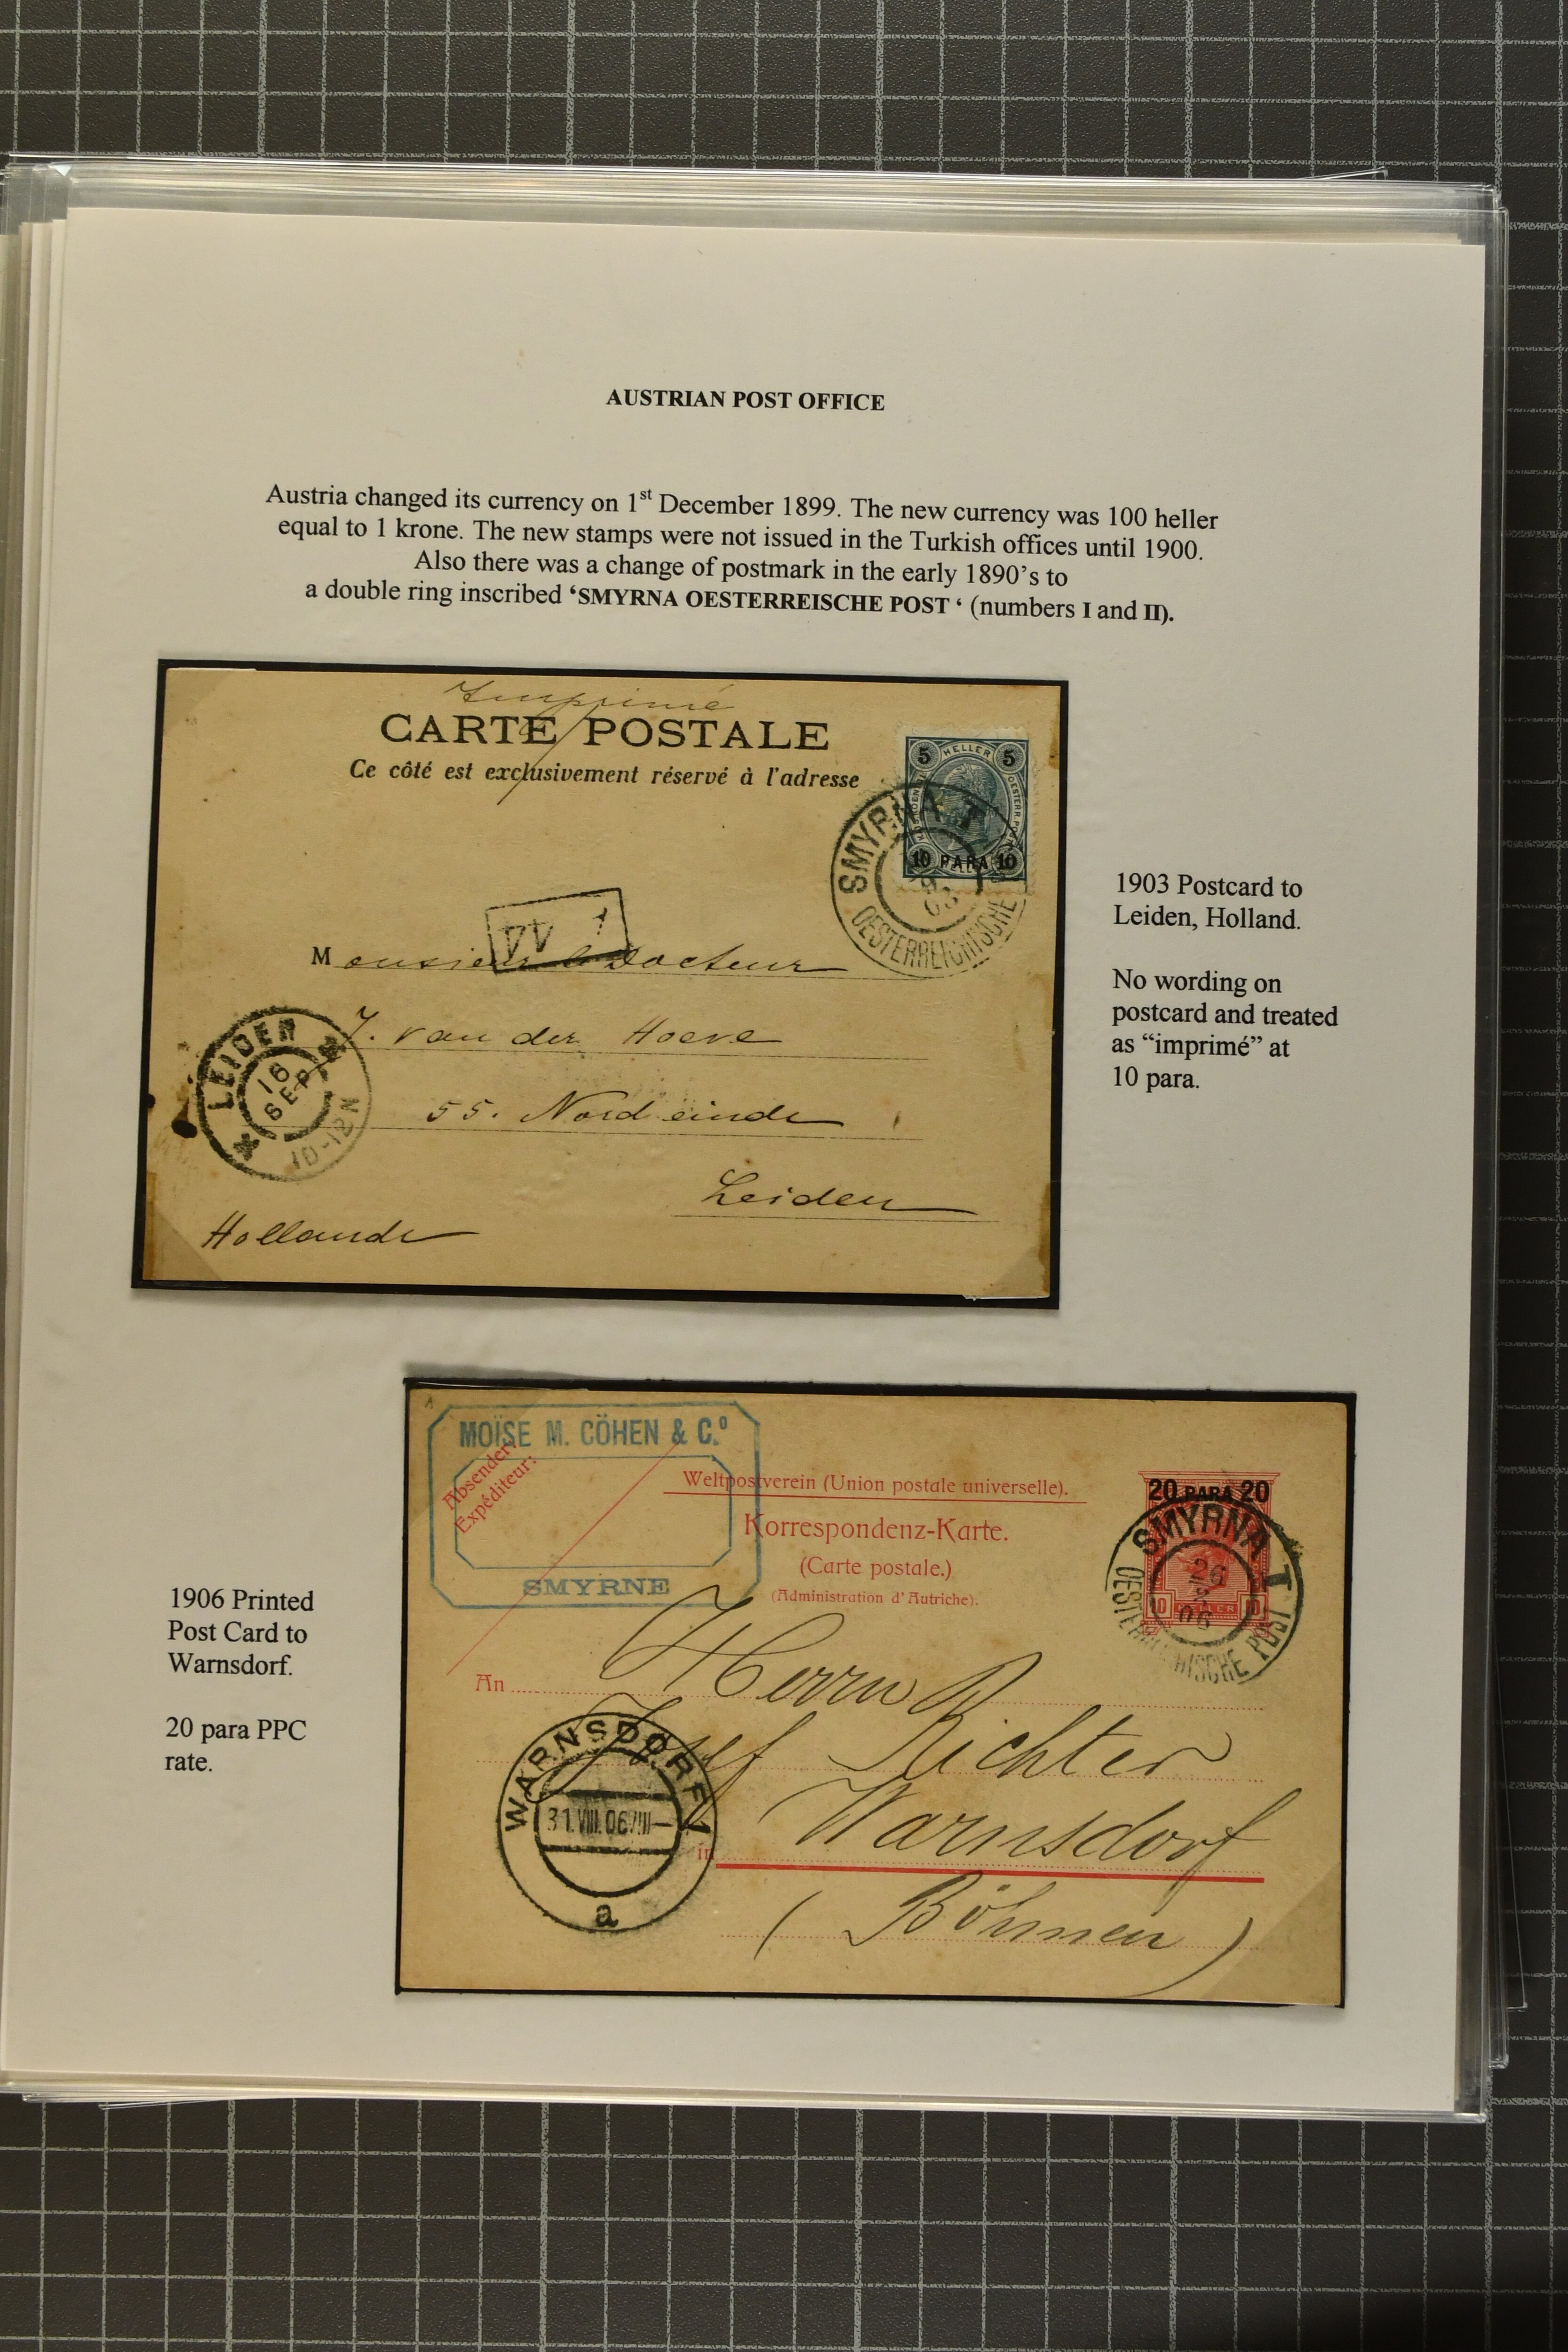 AUSTRIAN POST OFFICE
Austria changed its currency on 1st December 1899. The new currency was 100 heller
equal to 1 krone. The new stamps were not issued in the Turkish offices until 1900.
Also there was a change of postmark in the early 1890's to
a double ring inscribed ‘SMYRNA OESTERREISCHE POST ‘ (numbers I and II).
Imprimé
CARTE POSTALE
Ce côté est exclusivement réservé à l'adresse
5 HELLER 5
10 PARA 10
SMYRNA I
OESTERREICHISCHE
03
Monsieur le Docteur
J. van der Hoeve
55. Nordeinde
Leiden
Hollande
LEIDEN
16
SEP
10-12N
1903 Postcard to
Leiden, Holland.
No wording on
postcard and treated
as “imprimé” at
10 para.
MOÏSE M. CÖHEN & C.º
SMYRNE
Absender:
Expéditeur:
Weltpostverein (Union postale universelle).
Korrespondenz-Karte.
(Carte postale.)
(Administration d'Autriche).
20 PARA 20
10 HELLER 10
SMYRNA I
26
06
POST
An
Herrn
Josef Richter
in
Warnsdorf
(Böhmen)
WARNSDORF 1
31.VIII.06
a
1906 Printed
Post Card to
Warnsdorf.
20 para PPC
rate.